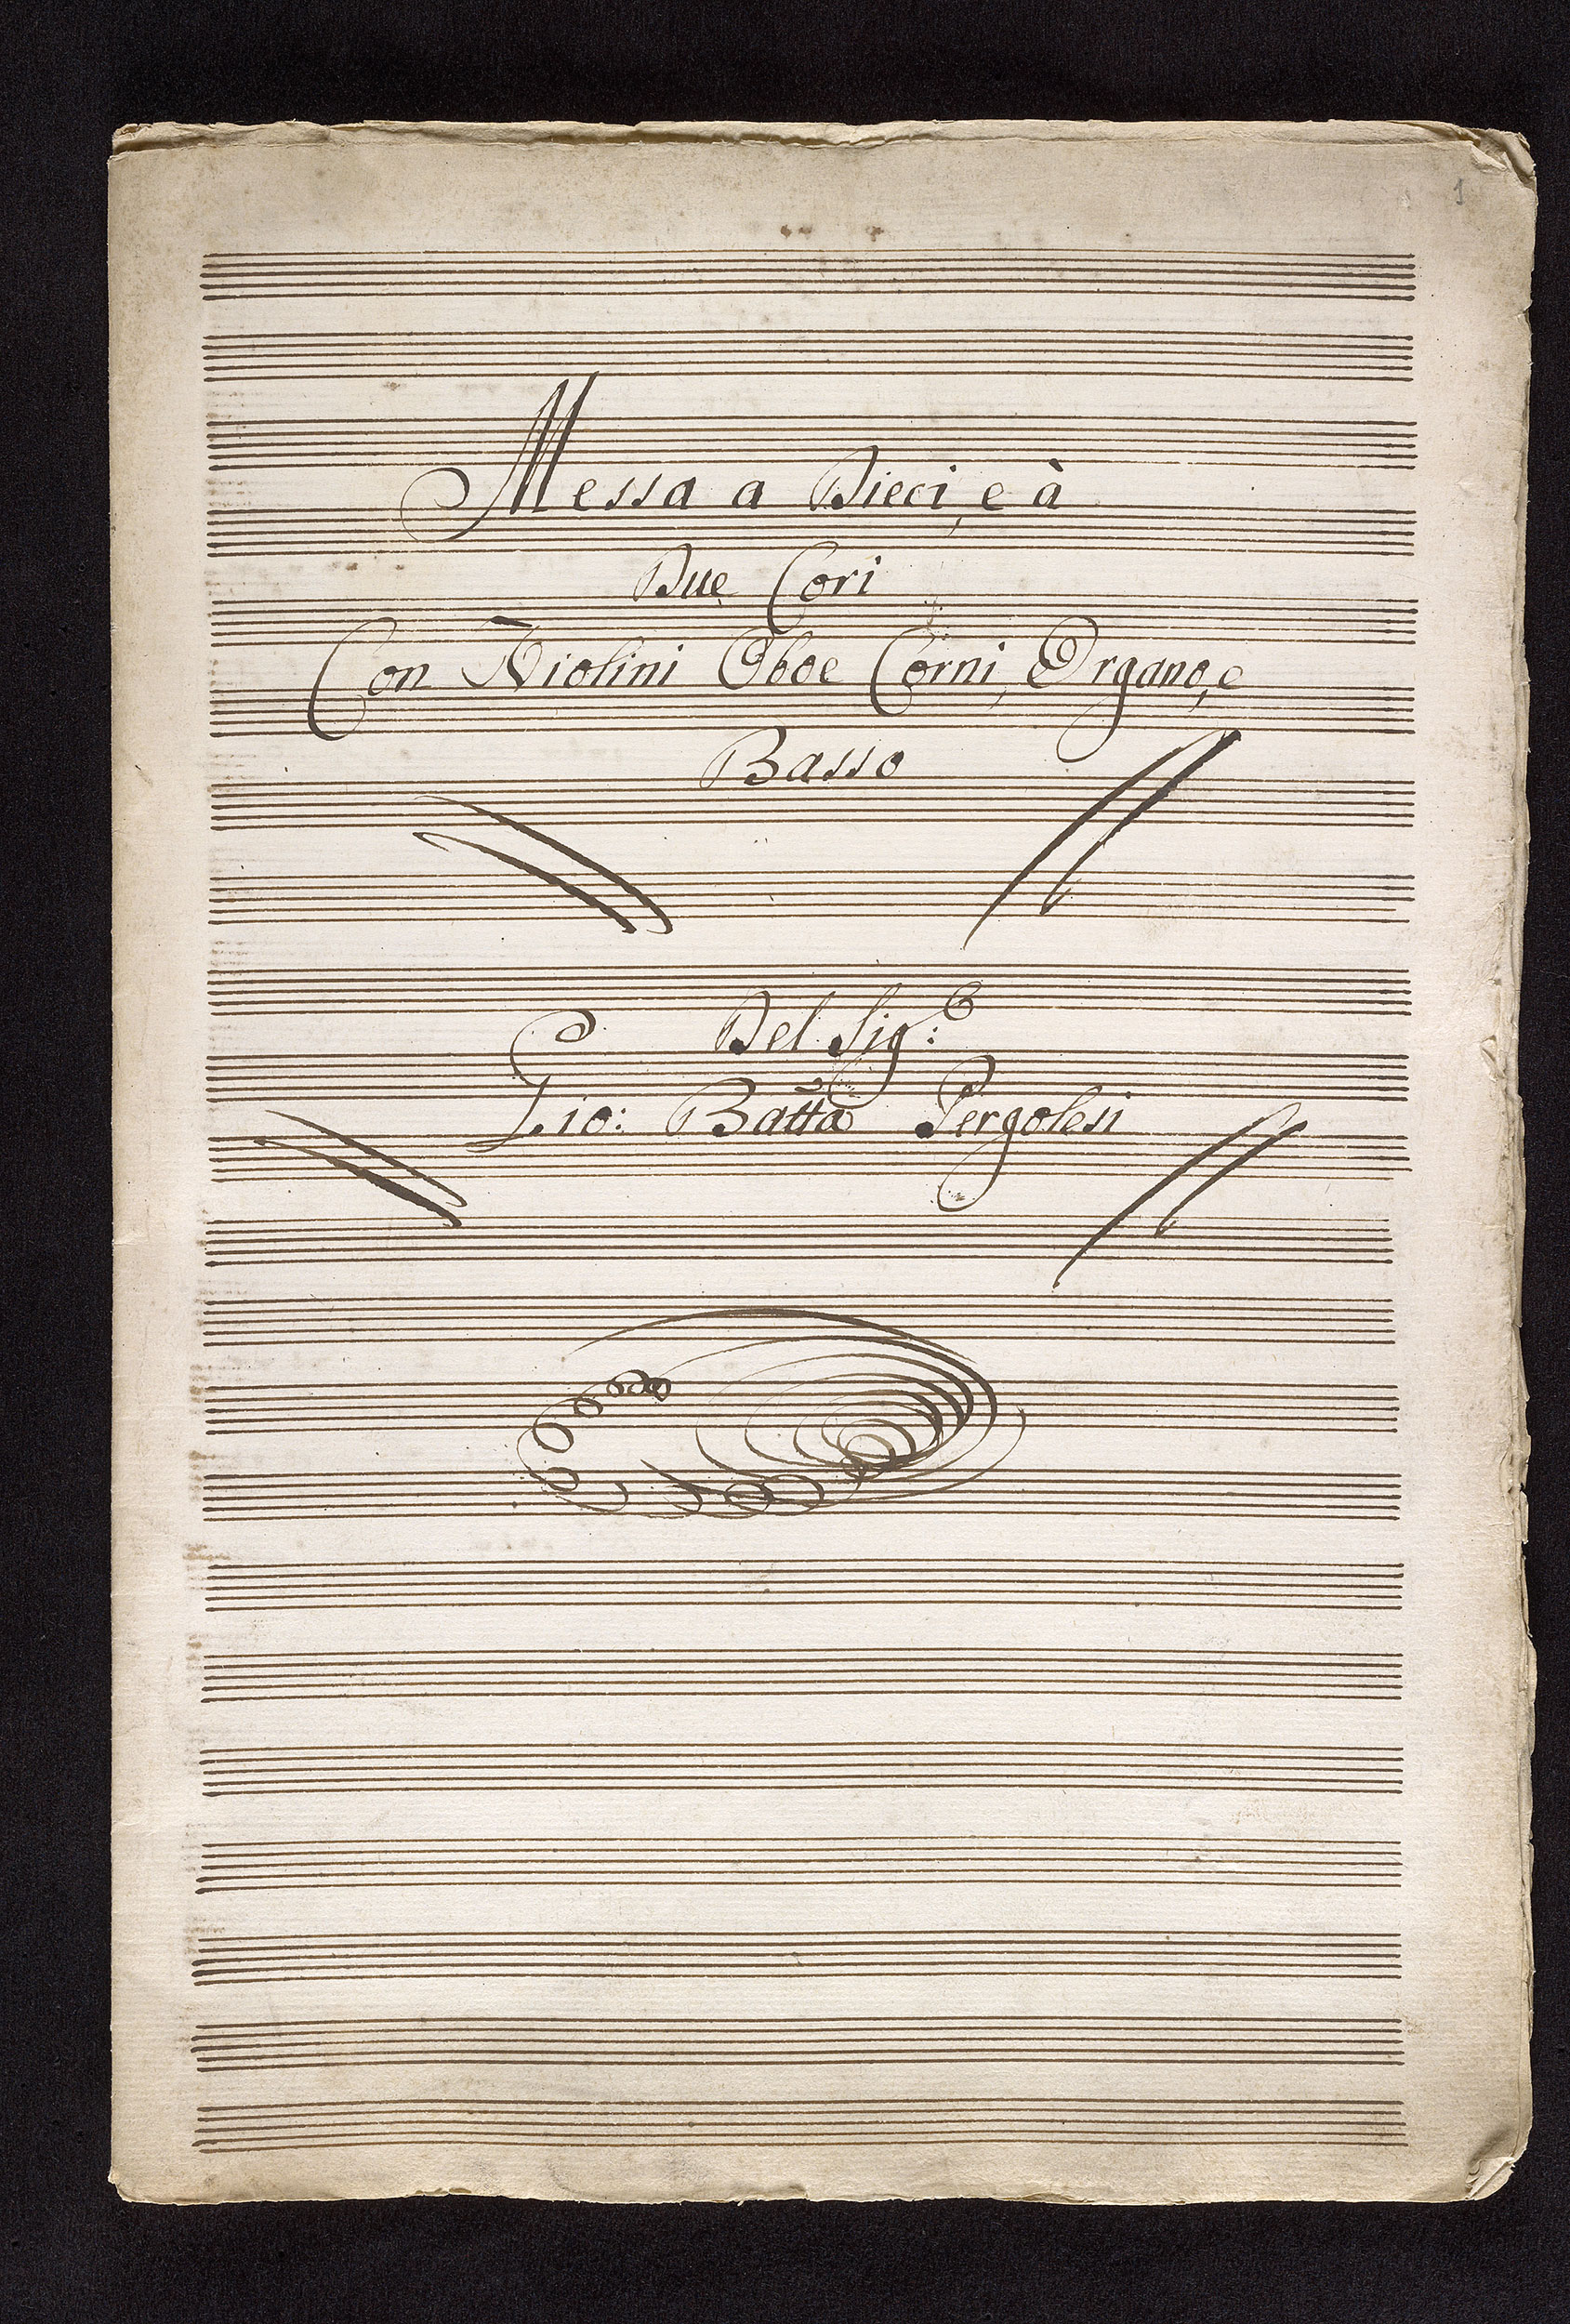 1
Messa a Dieci, e à
Due Cori
Con Violini Oboe Corni, Organo, e
Basso
Del Sig.e:
Gio: Batta Pergolesi